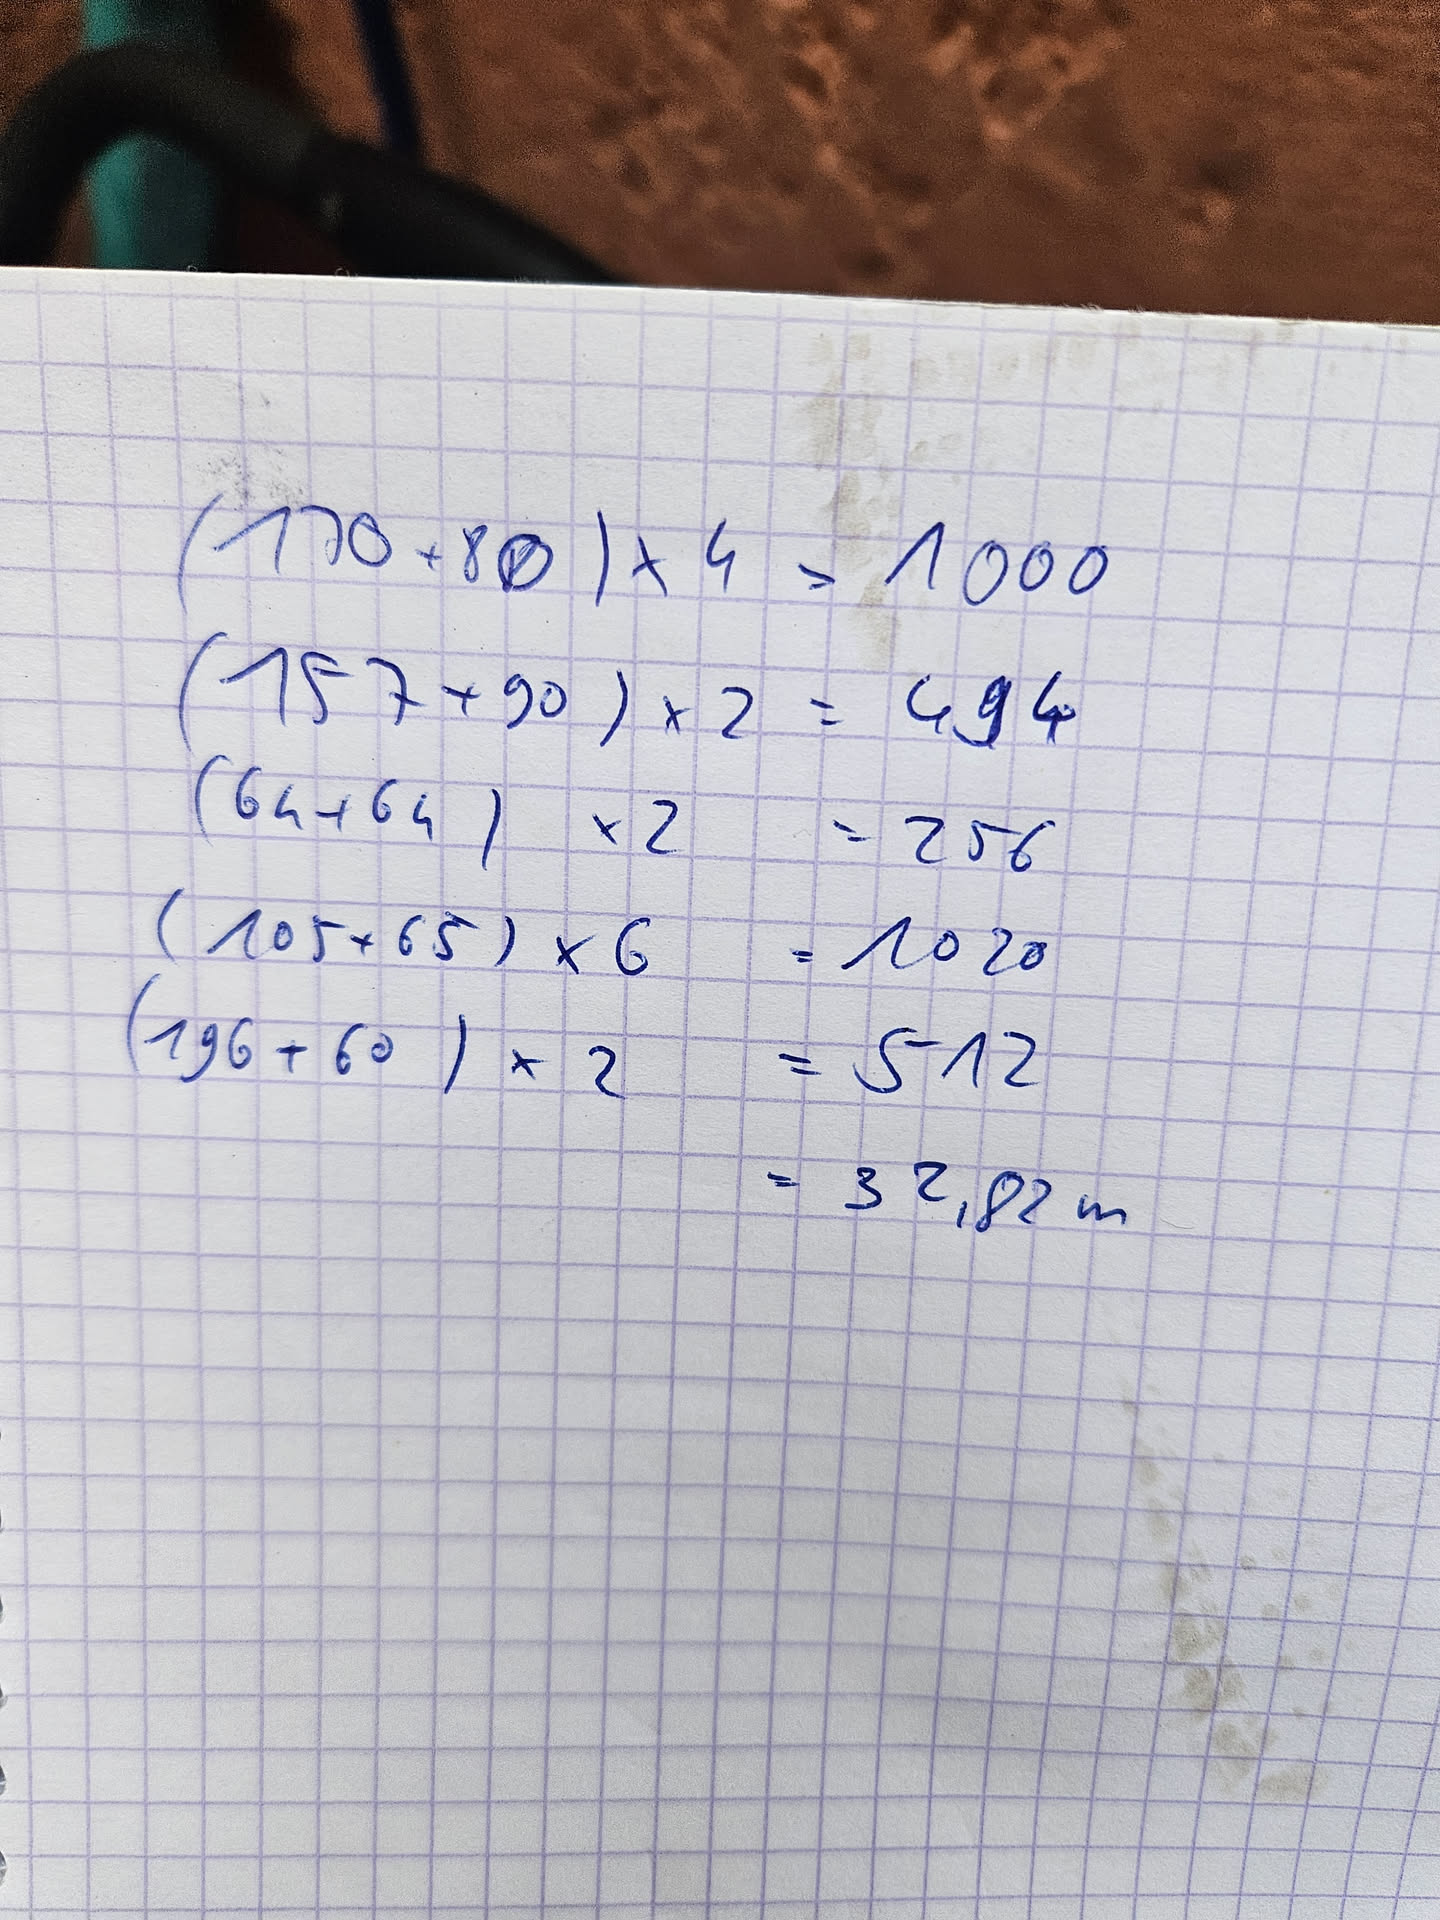 (170+80)×4 = 1000
(157+90)×2 = 494
(64+64) ×2 = 256
(105+65)×6 = 1020
(196+60)×2 = 512
= 32,82m